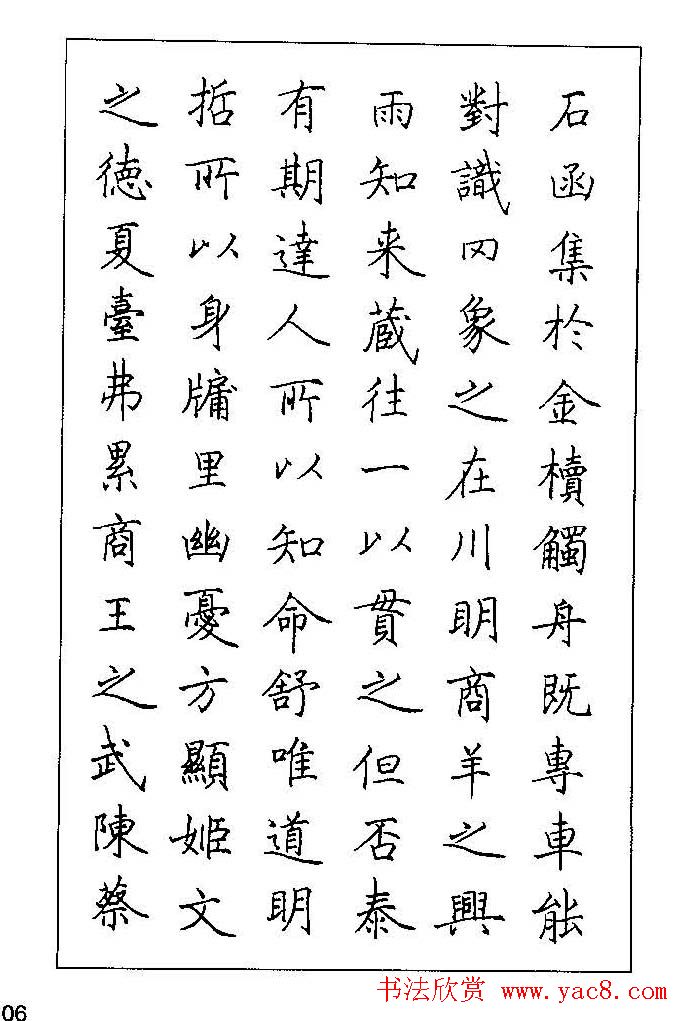 石函集於金櫝觸舟既專車能
對識罔象之在川明商羊之興
雨知来蔵往一以貫之但否泰
有期達人所以知命舒唯道明
哲所以身牖里幽憂方顯姬文
之德夏臺弗累商王之武陳蔡
书法欣赏 www.yac8.com
06